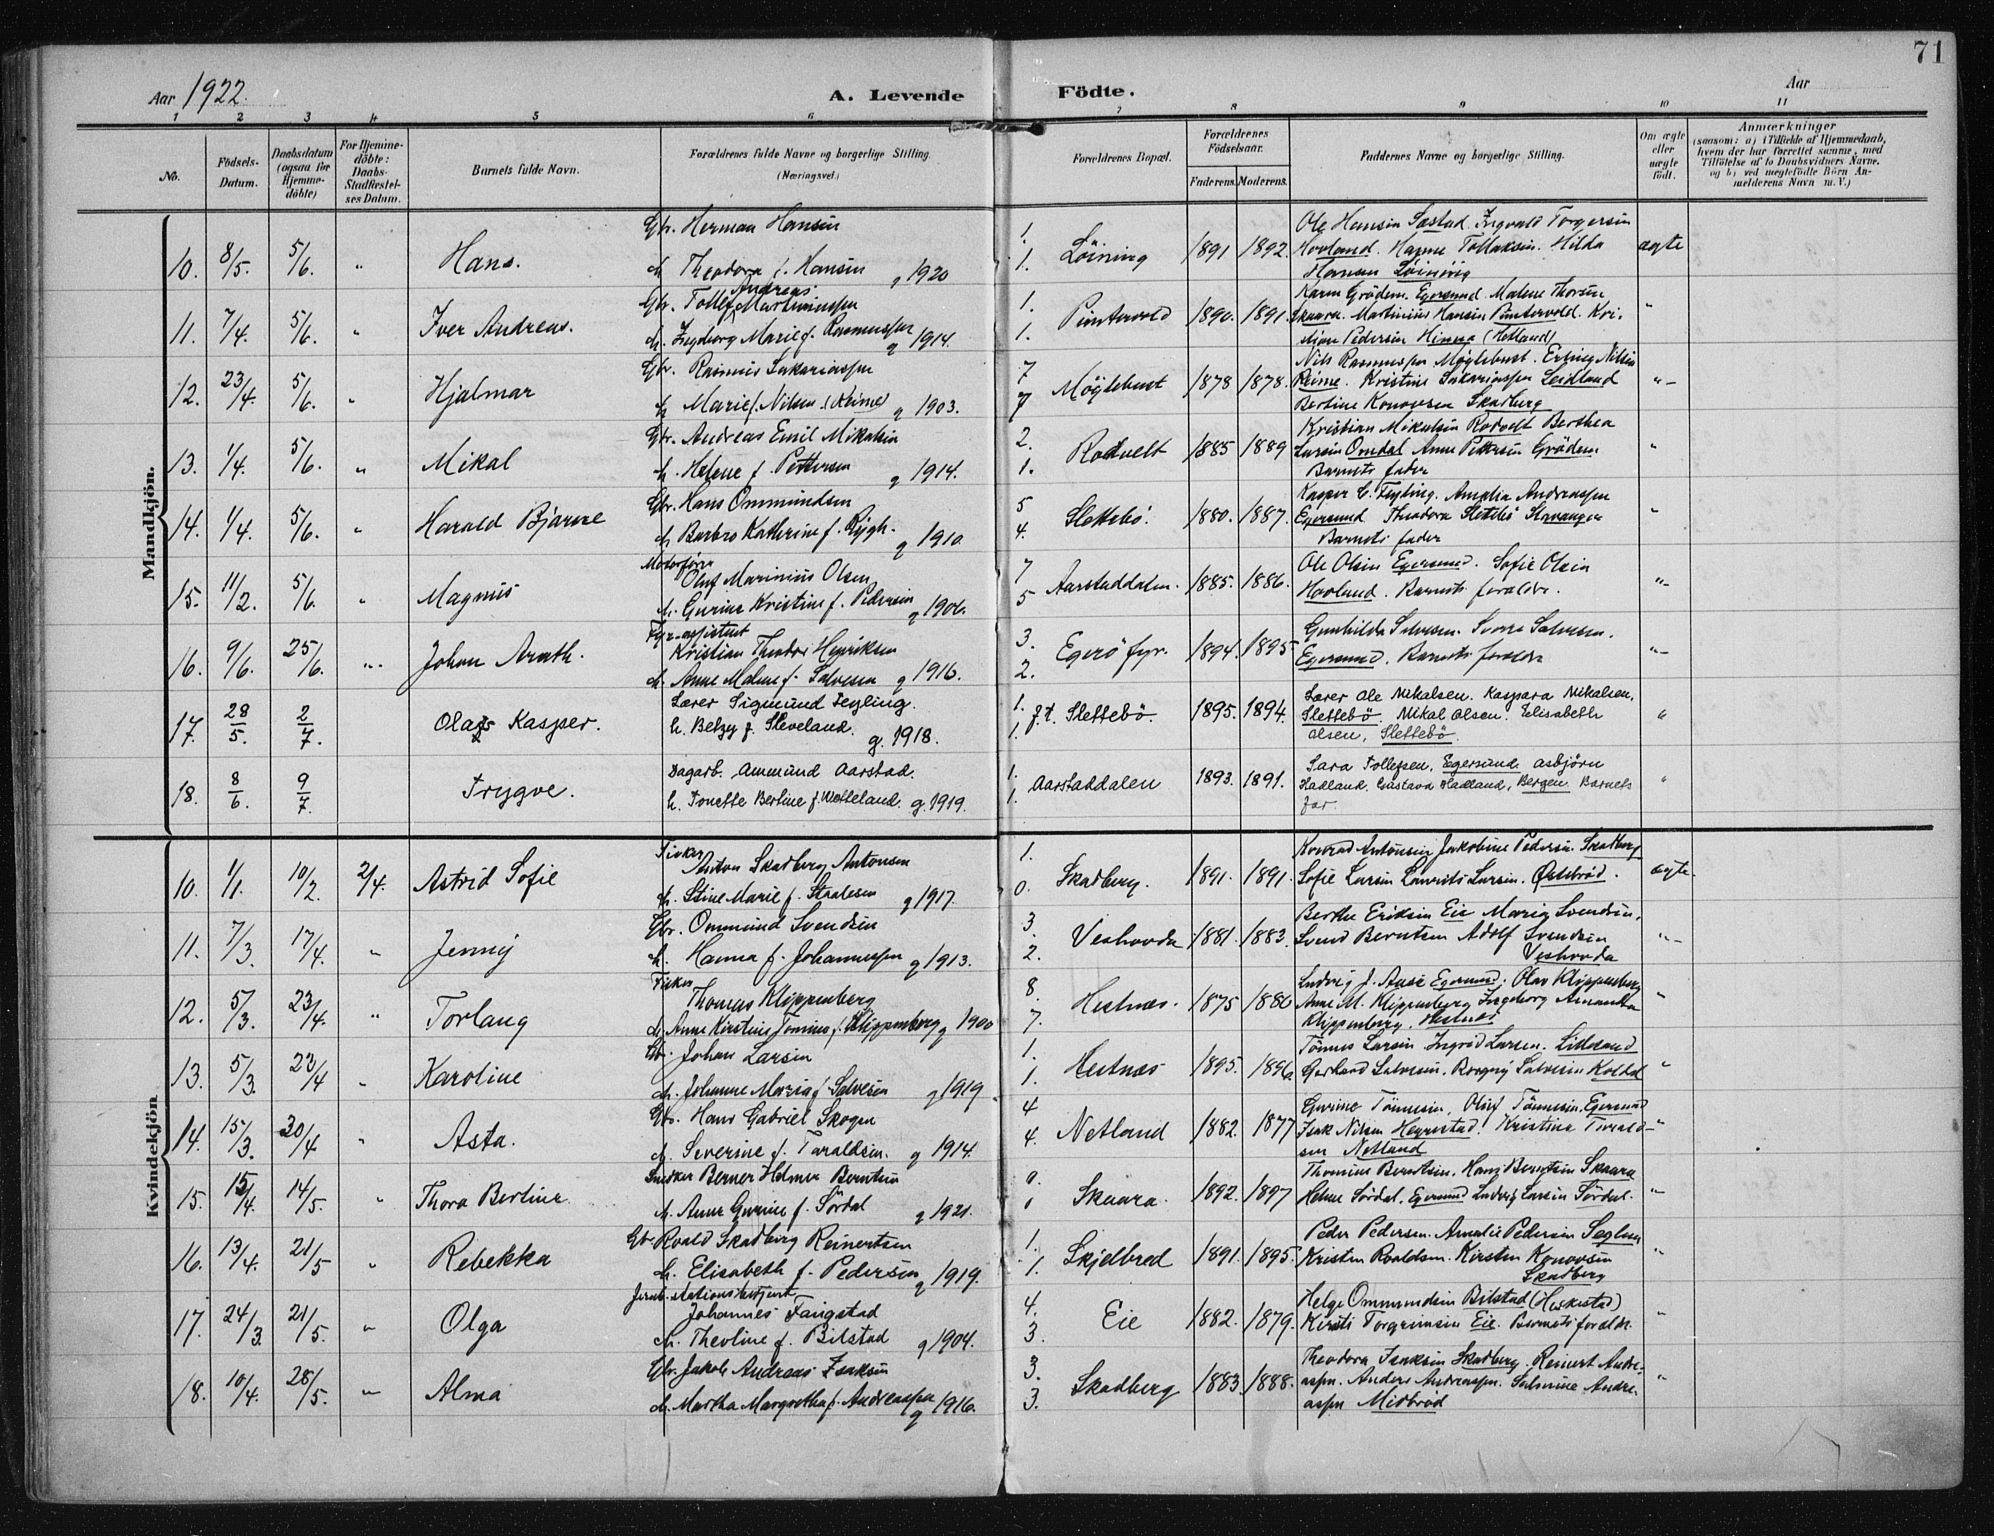 71
Aar 1922.
A. Levende Födte.
Aar
1 2 3 4 5 6 7 8 9 10 11
No.
Födsels-Datum.
Daabsdatum (ogsaa for Hjemme-döbte)
For Hjemme-döbte: Daabs-Stadfæstel-ses Datum.
Barnets fulde Navn.
Forældrenes fulde Navne og borgerlige Stilling
(Næringsvei.)
Forældrenes Bopæl.
Forældrenes Födselsaar.
Faderens. Moderens.
Faddernes Navne og borgerlige Stilling.
Om ægte eller uægte födt.
Anmærkninger
(saasom: a) i Tilfælde af Hjemmedaab, hvem der har forrettet samme, med Tilföielse af to Daabsvidners Navne, og b) ved uægtefödte Börn An-melderens Navn m. V.)
Mandkjön.
Gbr. Herman Hansen
10. 8/5. 5/6. " Hans. h. Theodora f. Hansen g 1920
1. 1. Löining 1891 1892. ægte
Hovland. Hanne Tollaksen. Hilda
Hansen
11. 7/4. 5/6. " Iver Andreas.
Gbr. Tollef Andreas Martiniussen
h. Ingeborg Marie f. Rasmussen g 1914.
1. 1. 1890. 1891. "
Karen Gröden. Egersund. Malene
Skaara. Martinius Hansen
12. 23/4. 5/6. " Hjalmar
Gbr. Rasmus Sakariassen
h. Marie f. Nilsen (Reime) g 1903.
7 7 Möglebust 1878 1878. "-
Nils Rasmussen Möglebust. Erling Nilsen
Reime. Kristine Sakariassen Leidland
Bertine Skadberg
13. 1/4. 5/6. " Mikal
Gbr. Andreas Emil Mikalsen
h. Helene f. Pettersen g 1914.
2. 1. Rodvelt 1885 1889 "
Kristian Mikalsen Rodvelt Berthea
Larsen Omdal Anne Pettersen Gröden
Barnets fader
14. 1/4. 5/6. " Harald Bjarne
Gbr. Hans Ommundsen
h. Barbro Kathrine f. Rygh. g 1910.
5 4. Slettebö. 1880. 1887. "
Kasper C. Feyling. Amalia Andreassen
Egersund Theodora Slettebö Stavanger
Barnets fader
15. 11/2. 5/6. " Magnus
Motorförer
Oluf Marinius Olsen
h. Gurine Kristine f. Pedersen g 1906.
7 5 Aarstaddalen. 1885. 1886. "-
Ole Olsen Egersund. Sofie Olsen
Hovland. Barnets foreldre.
16. 9/6. 25/6. "" Johan
Fyrassistent
Kristian Theodor Henriksen
h. Anne Malene f. Salvesen g 1916.
3. 2. Egerö fyr. 1894. 1895 "-
Gunhilda Salvesen. Sverre Salvesen.
Egersund. Barnets foreldre
17. 28/5. 2/7. Olaf Kasper.
Lærer Sigmund Feyling.
h. Betzy f. Sleveland. g. 1918.
1. 1. f.t. Slettebö. 1895. 1894. "
Lærer Ole Mikalsen. Kaspara Mikalsen,
Slettebö. Mikal Olsen. Elisabeth
Olsen, Slettebö.
18. 8/6. 9/7. Trygve.
Dagarb. Ommund Aarstad.
h. Tonette Bertine f. Wetteland. g. 1919.
1. 1. Aarstaddalen 1893. 1891. "
Sara Tollefsen, Egersund. Asbjörn
Hadland. Gustava Hadland, Bergen. Barnets
far.
Kvindekjön
10. 1/1. 10/2. 2/4. Astrid Sofie
Fisker
Anton Skadberg Antonsen
h. Stine Marie f. Staalesen g 1917.
1. 0. Skadberg. 1891. 1891. ægte.
Konrad Antonsen Jakobine Pedersen. Skadberg
Sofie Larsen Laurits Larsen. Östebröd.
11. 7/3. 17/4. " Jenny
Gbr. Ommund Svendsen
h. Hanna f. Johannessen g 1913.
3. 2. Veshovda 1881. 1883. "-
Berthe Eriksen Eie Maria Svendsen.
Svend Berntsen Adolf Svendsen
Veshovda
12. 5/3. 23/4. " Torlaug
Fisker
Thomas Klippenberg
h. Anne Kirstine f. Klippenberg g 1900
8. 7. Hestnæs. 1875 1880 "
Ludvig J. Egersund. Olav Klippenberg
Anne M. Klippenberg Ingeborg Amanda
Klippenberg. Hestnæs
13. 5/3. 23/4 " Karoline
Gbr. Johan Larsen
h. Johanne Maria f. Salvesen g 1919.
1. 1. Hestnæs 1895. 1896. "
Tönnes Larsen Ingrid Larsen.
Gerhard Salvesen. Borgny Salvesen Koldal
14. 15/3. 30/4 " Asta.
Gbr. Hans Gabriel Skogen
h. Severine f. Taraldsen. g 1914.
4 4. Netland 1882. 1877 "
Gurine Tönnesen, Oluf Tönnesen. Egersund
Isak Nilsen Hegrestad. Kristine Tarald-
sen Netland
15. 15/4. 14/5. " Thora Bertine
Snedker Berner Helmer Berntsen
h. Anne Gurine f. Sördal g 1921.
0 1 Skaara. 1892. 1897 "-
Thomine Berntsen. Hans Berntsen Skaara
Helene Sördal, Egersund Ludvig Larsen Sördal.
16. 13/4. 21/5 " Rebekka
Gbr. Roald Skadberg Reinertsen
h. Elisabeth f. Pedersen g 1919.
1. 1. Skjelbred 1891. 1895. "
Peder Pedersen. Amalie Pedersen Seglem
Kristen Roaldsen. Kirsten
Skadberg
17. 24/3 21/5. " Olga
Jernb.stationsbetjent
Johannes Tangstad
h. Theoline f. Bilstad g 1904.
4. 3. Eie 1882. 1879. "
Helge Ommundsen Bilstad (Heskestad)
Kirsti Torgrimsen Eie. Barnets foreldr.
18. 10/4. 28/5. " Alma
Gbr. Jakob Andreas Isaksen
h. Martha Margretha f. Andreassen g 1916.
3. 3. Skadberg 1883. 1888. "
Theodora Isaksen Skadberg. Reinert Andre-
assen. Anders Andreassen. Salmine Andre-
assen Midbröd